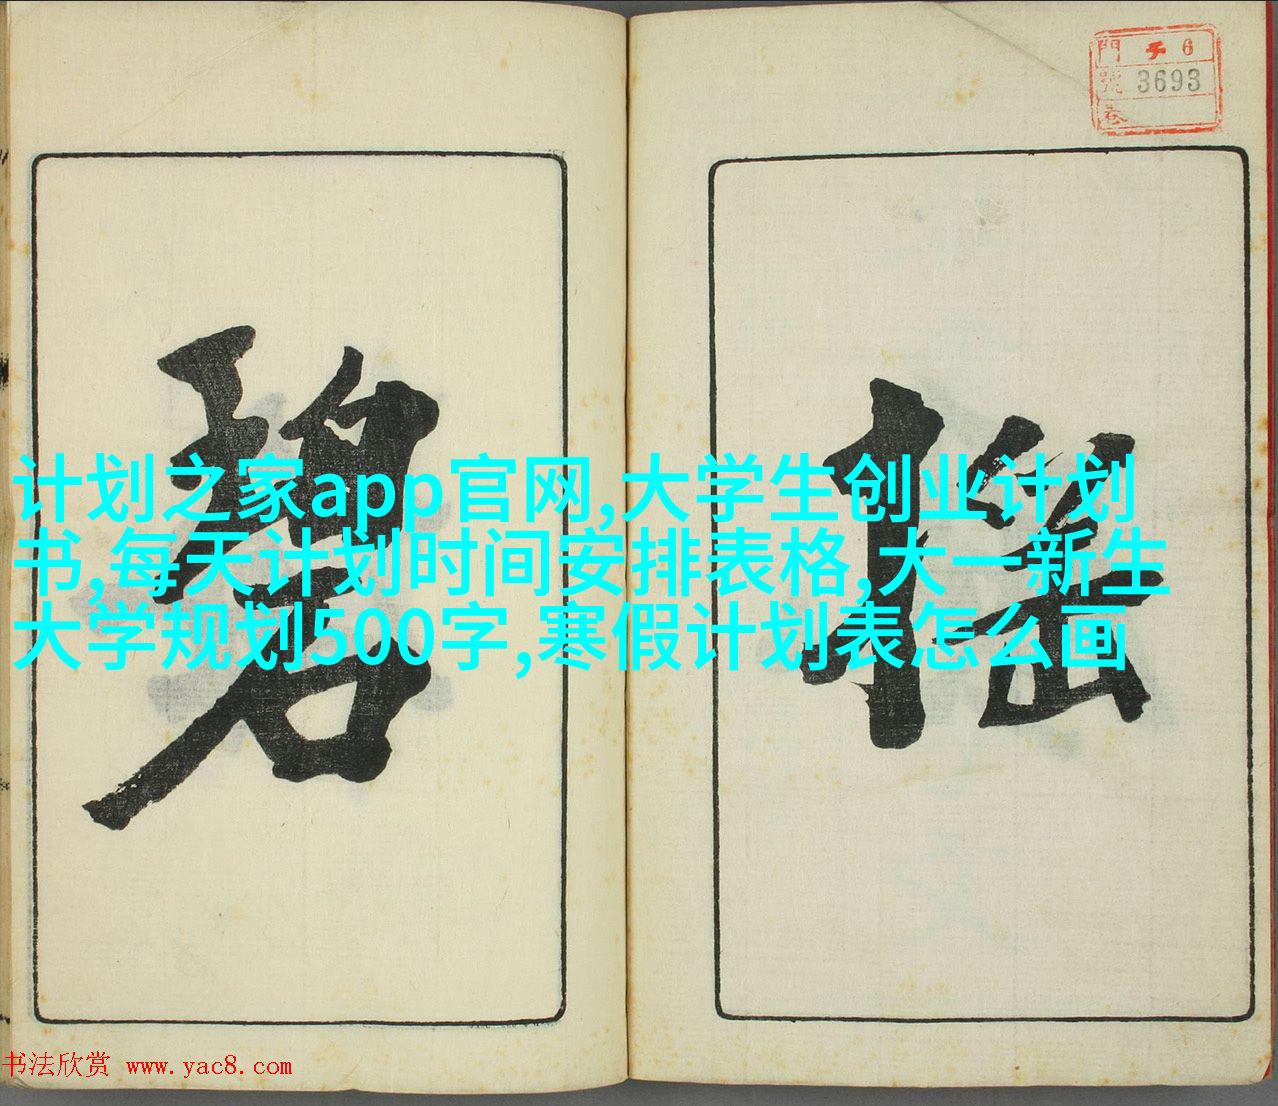 門 チ 6
號 3693
碧 搖
计划之家app官网,大学生创业计划
书,每天计划时间安排表格,大一新生
大学规划500字,寒假计划表怎么画
书法欣赏 www.yac8.com